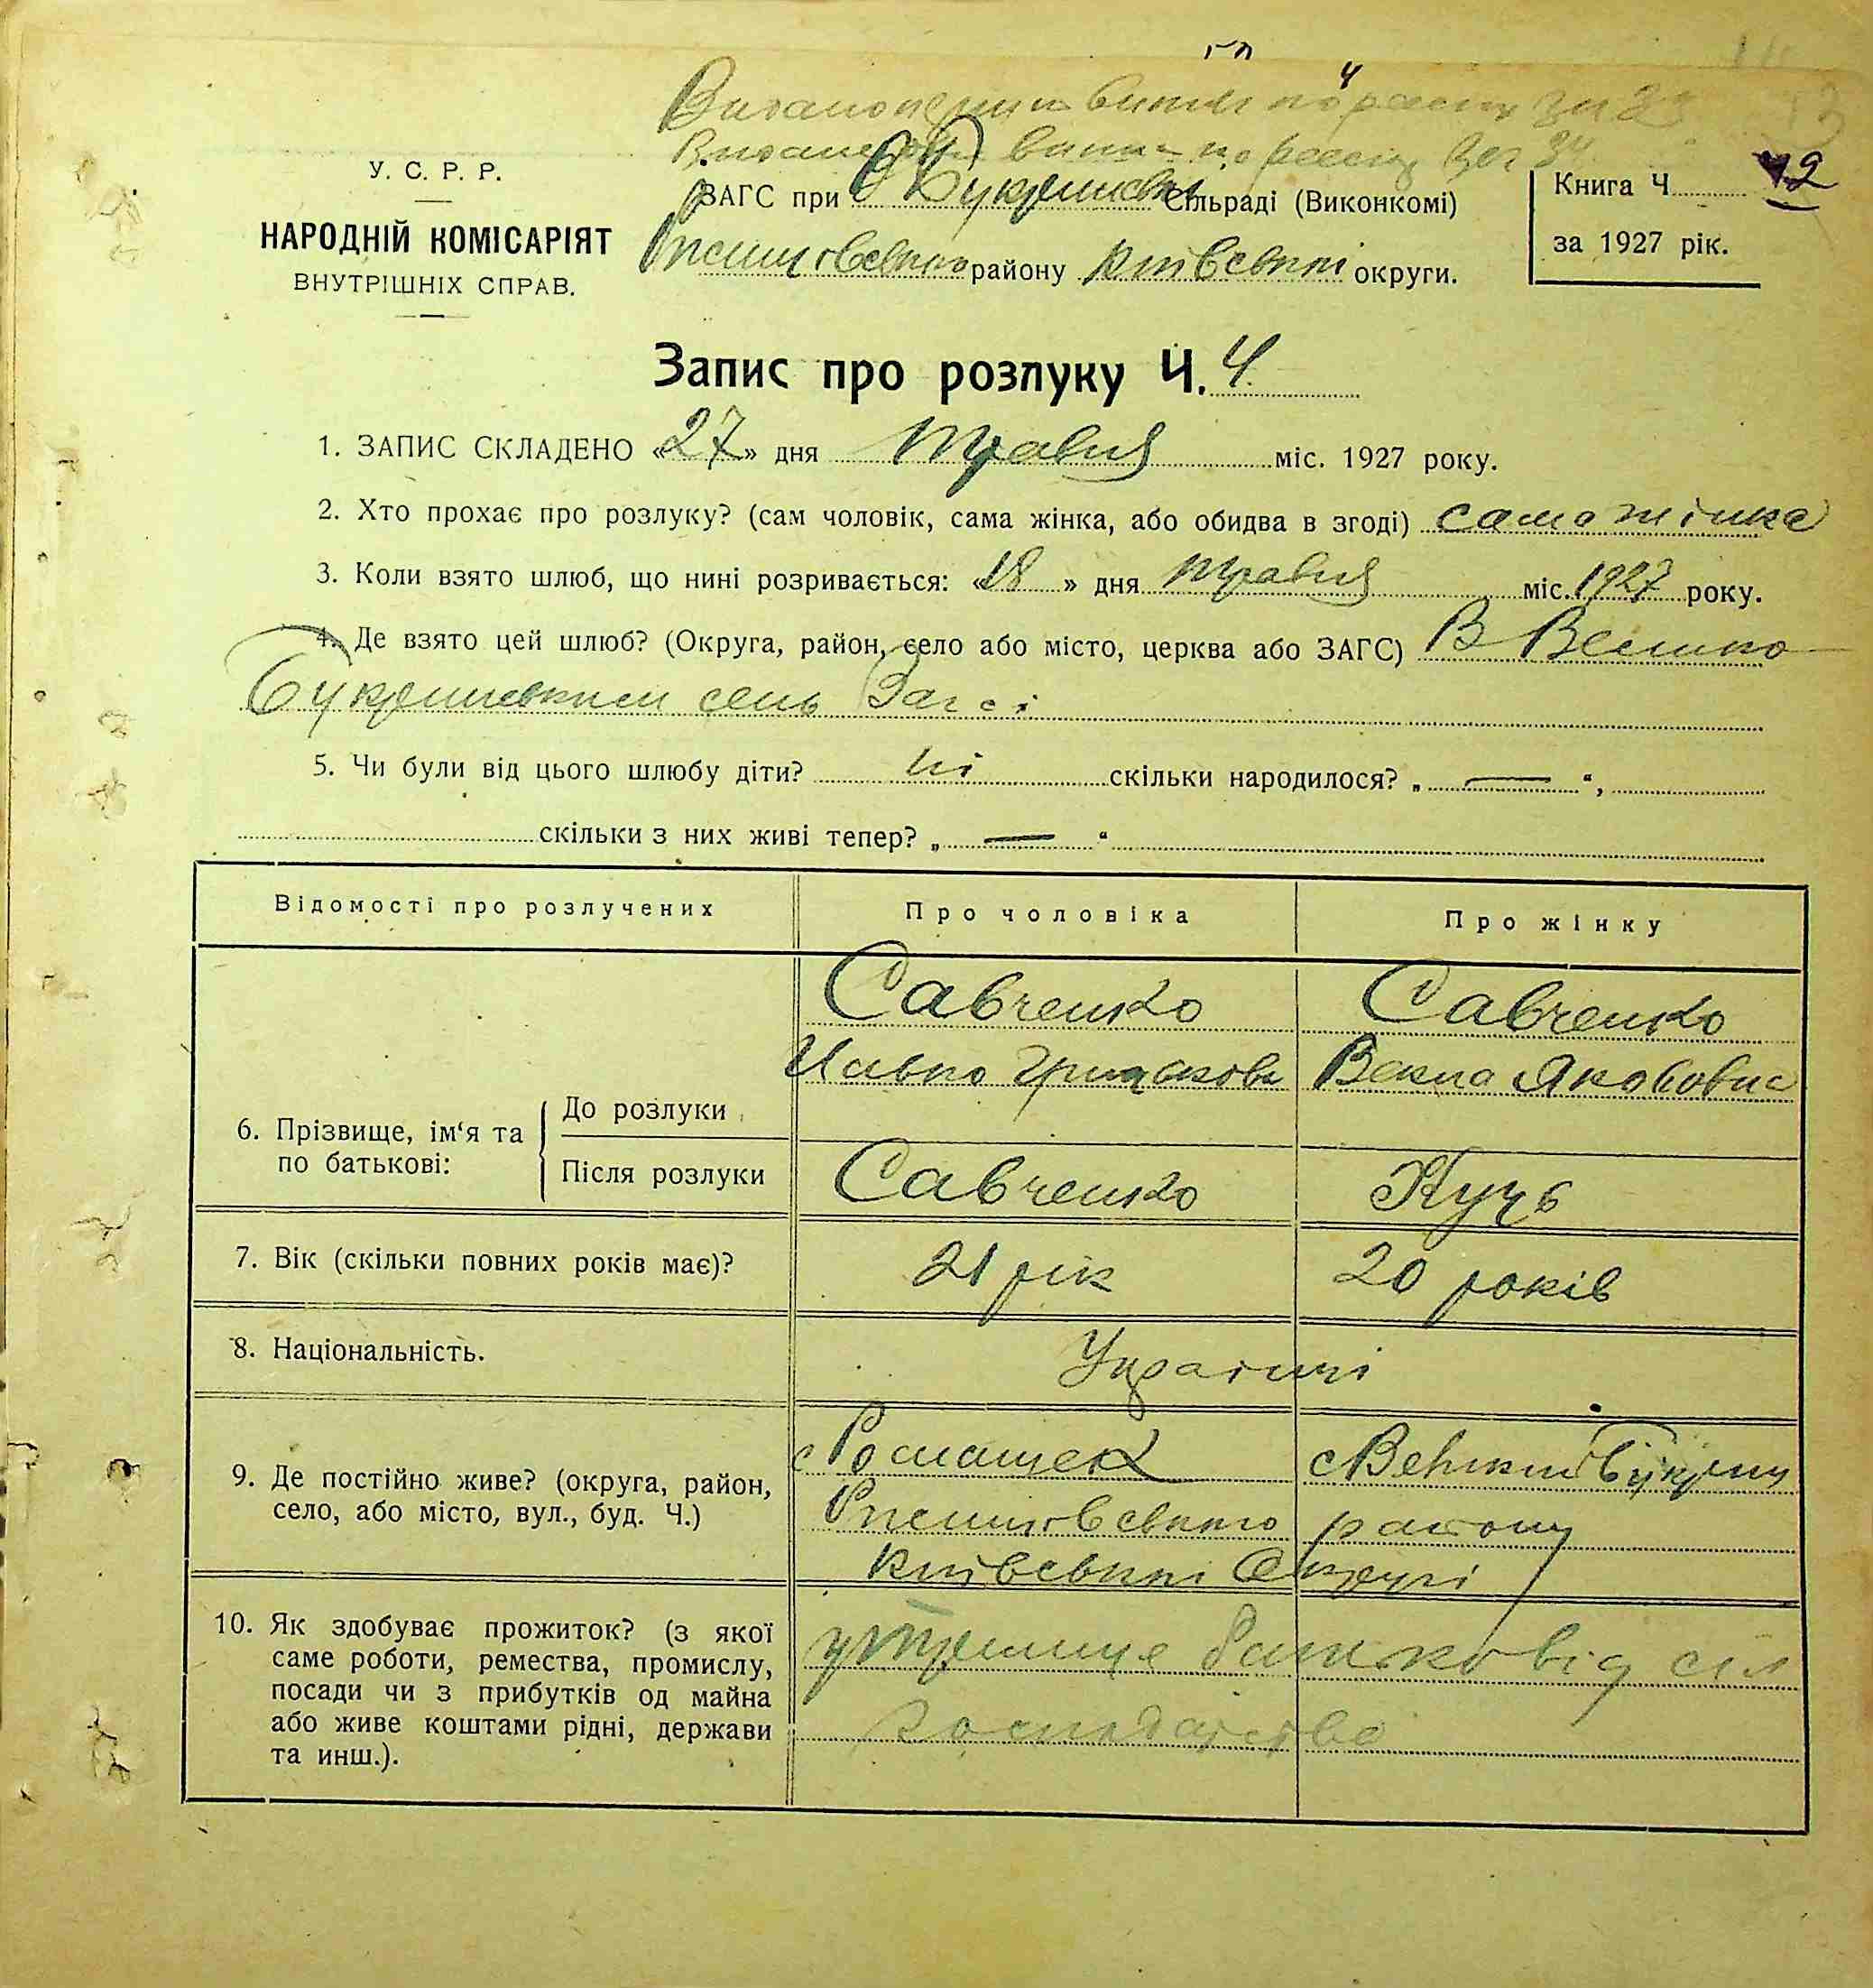 У. С. Р. Р.
НАРОДНІЙ КОМІСАРІЯТ
ВНУТРІШНІХ СПРАВ.
ЗАГС при Сільраді (Виконкомі)
району Київської округи.
Книга Ч. 42
за 1927 рік.
Запис про розлуку Ч. 4
1. ЗАПИС СКЛАДЕНО «27» дня Травня міс. 1927 року.
2. Хто прохає про розлуку? (сам чоловік, сама жінка, або обидва в згоді) сама жінка
3. Коли взято шлюб, що нині розривається: «18» дня травня міс. 1927 року.
4. Де взято цей шлюб? (Округа, район, село або місто, церква або ЗАГС) В Велико
Букринським сель Загсі
5. Чи були від цього шлюбу діти? ні скільки народилося? „ — “,
скільки з них живі тепер? „ — “
Відомості про розлучених
Про чоловіка
Про жінку
6. Прізвище, ім‘я та по батькові:
До розлуки
Савченко
Савченко
Якововна
Після розлуки
Савченко
Куць
7. Вік (скільки повних років має)?
21 рік
20 років
8. Національність.
Українці
9. Де постійно живе? (округа, район,
село, або місто, вул., буд. Ч.)
с Ромашек
с Великий Букрин
району
Київської Округи
10. Як здобуває прожиток? (з якої
саме роботи, ремества, промислу,
посади чи з прибутків од майна
або живе коштами рідні, держави
та инш.).
від сіл
господарства